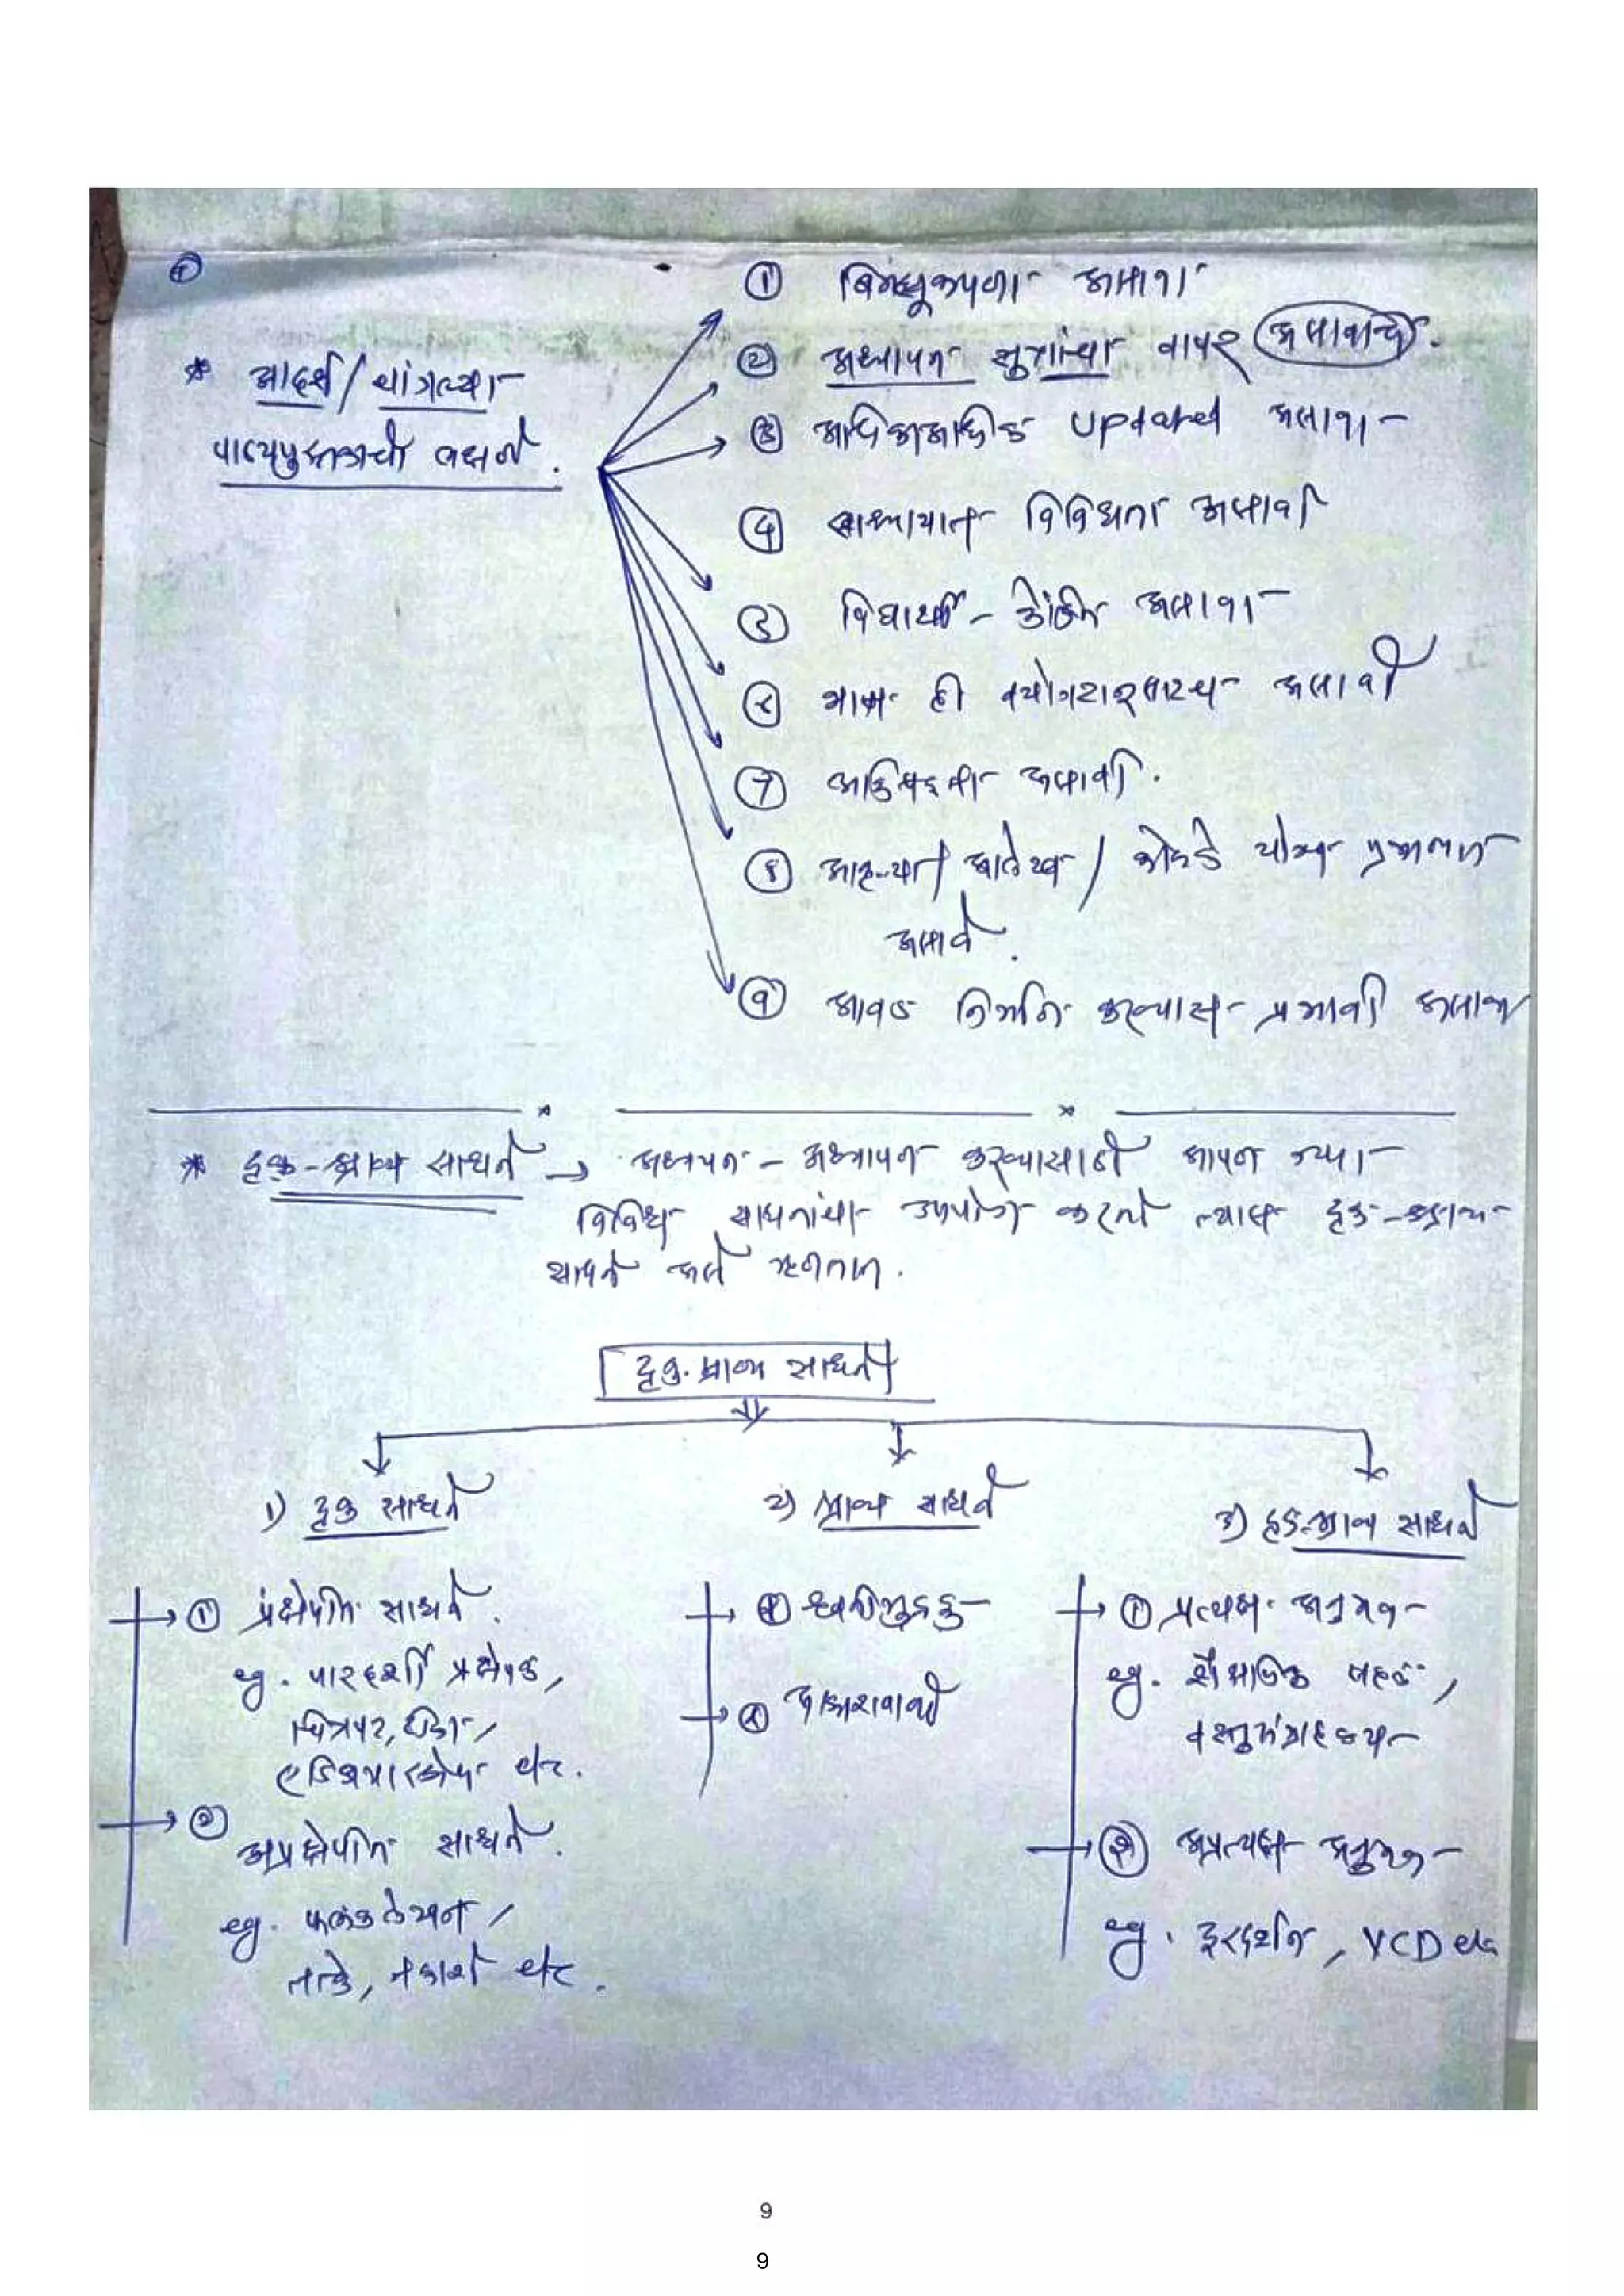 * आदर्श / चांगल्या
पाठ्यपुस्तकाची लक्षणे.
① बिनचूकपणा असावा
② अध्यापन सुत्रांचा वापर असावा
③ अधिकअधिक updated असावा
④ स्वाध्यायात विविधता असावी
⑤ विद्यार्थी - केंद्रित असावा
⑥ भाषा ही वयोगटानुसारच असावी
⑦ असावी.
⑧ आकृत्या / आलेख / कोष्टके योग्य प्रमाणात
असावे.
⑨ आवड निर्माण करण्यास प्रभावी असावा
* दृक-श्राव्य साधने → अध्ययन - अध्यापन करण्यासाठी आपण ज्या
विविध साधनांचा उपयोग करतो त्यास दृक-श्राव्य
साधने असे म्हणतात.
दृक-श्राव्य साधने
1) दृक साधने
2) श्राव्य साधने
3) दृक-श्राव्य साधने
① प्रक्षेपित साधने.
eg. पारदर्शी प्रक्षेपक,
चित्रपट,
एपिडायास्कोप etc.
② अप्रक्षेपित साधने.
eg. फलकलेखन,
तक्ते, नकाशे etc.
① ध्वनिमुद्रक
② आकाशवाणी
① प्रत्यक्ष अनुभव
eg. शैक्षणिक सहल,
वस्तुसंग्रहालय
② अप्रत्यक्ष अनुभव
eg. दूरदर्शन, VCD etc
9
9